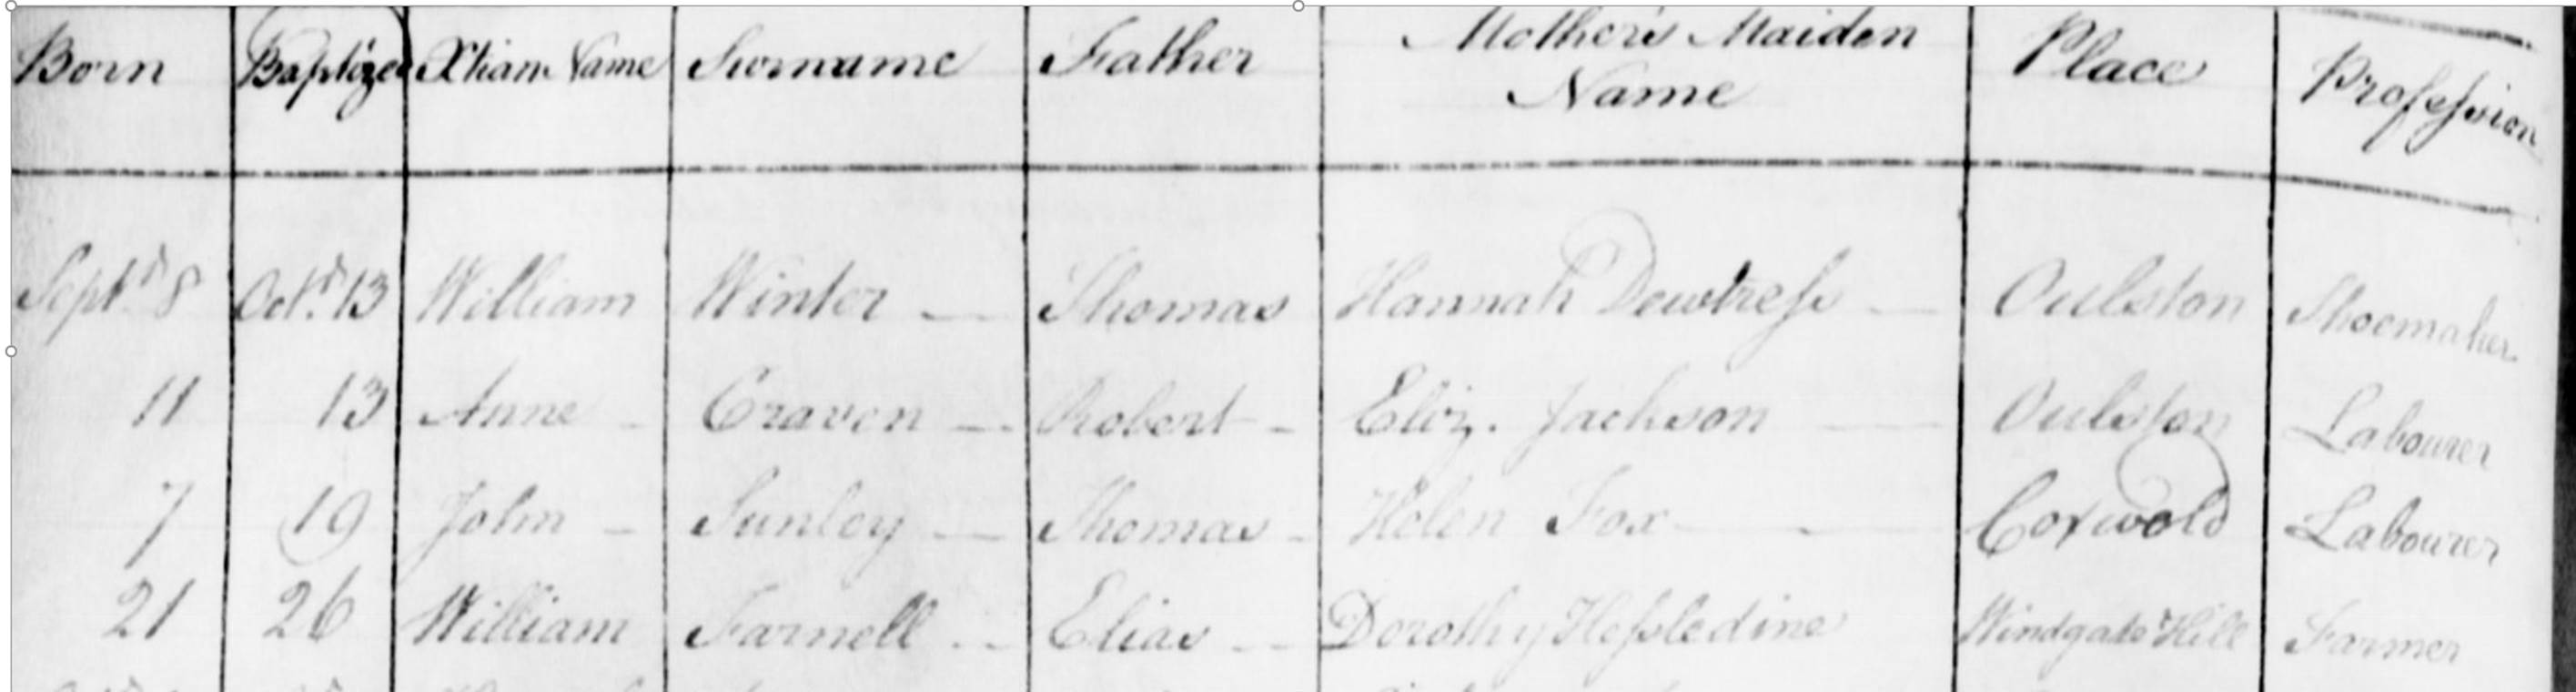 Born Baptized Xtian Name Surname Father Mother's Maiden Name Place Profession
Septr 8 Octr 13 William Winter — Thomas Hannah Dewtress — Oulston Shoemaker
11 13 Anne - Craven — Robert - Eliz. Jackson — Oulston Labourer
7 19 John - Sunley — Thomas - Helen Fox — Coxwold Labourer
21 26 William Farnell — Elias — Dorothy Hessledine Windgate Hill Farmer